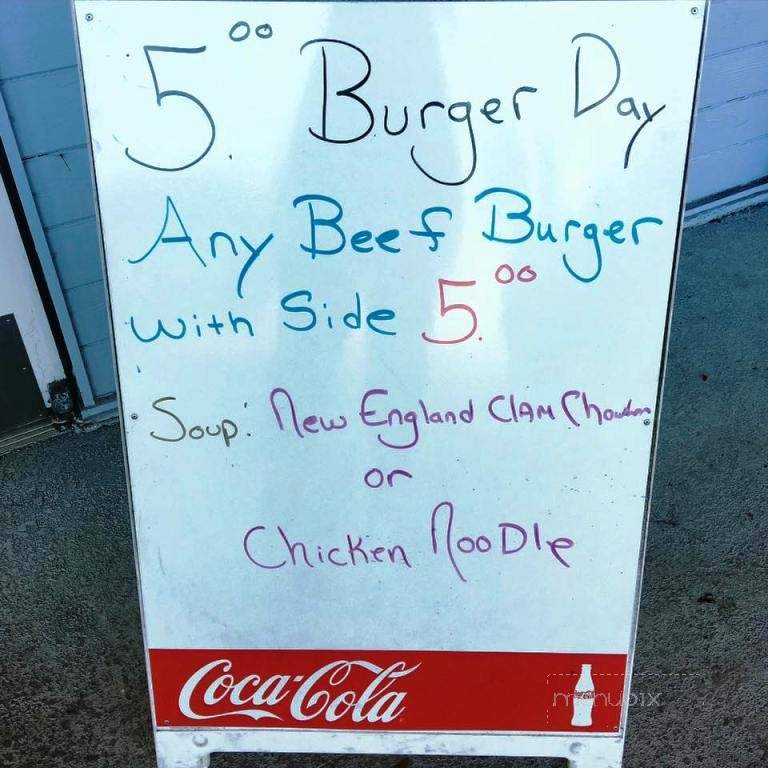 5.00 Burger Day
Any Beef Burger
with Side 5.00
Soup: New England Clam Chowder
or
Chicken Noodle
Coca-Cola
menupix